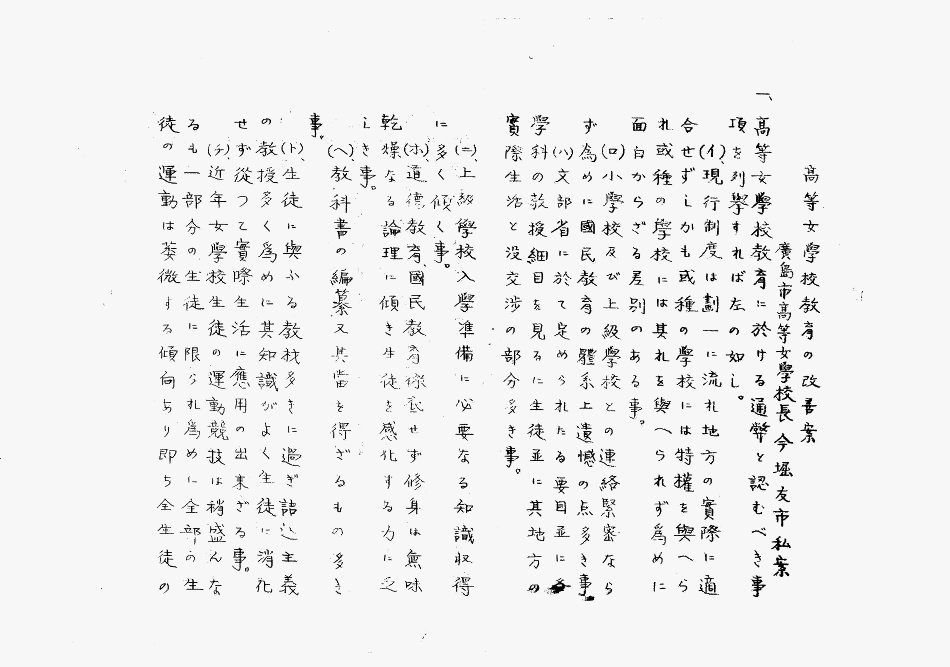 高等女學校教育の改善案
廣島市高等女學校長 今堀友市私案
一、高等女學校教育に於ける通弊と認むべき事
項を列擧すれば左の如し。
(イ)、現行制度は劃一に流れ地方の實際に適
合せずしかも或種の學校には特權を與へら
れ或種の學校には其れを與へられず爲めに
面白からざる差別のある事。
(ロ)小學校及び上級學校との連絡緊密なら
ず為めに國民教育の體系上遺憾の点多き事。
(ハ)文部省に於て定められたる要目並に
學科の教授細目を見るに生徒並に其地方の
實際生活と没交渉の部分多き事。
(ニ)、上級學校入學準備に必要なる知識収得
に多く傾く事。
(ホ)、道德教育、國民教育徹底せず修身は無味
乾燥なる論理に傾き生徒を感化する力に乏
しき事。
(ヘ)、教科書の編纂又其當を得ざるもの多き
事。
(ト)、生徒に與ふる教材多きに過ぎ詰込主義
の教授多く爲めに其知識がよく生徒に消化
せず從つて實際生活に應用の出来ざる事。
(チ)、近年女學校生徒の運動競技は稍盛んな
るも一部分の生徒に限られ爲めに全部の生
徒の運動は萎微する傾向あり即ち全生徒の